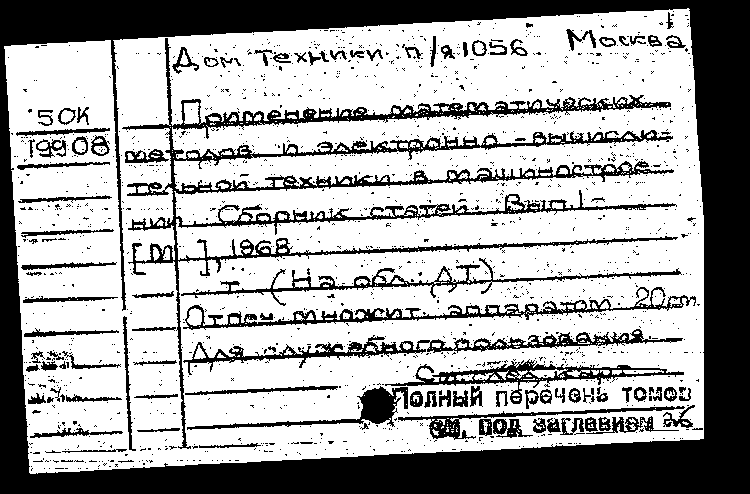 Дом Техники п/я 1056. Москва
50К
19908
Применение математических
методов и электронно-вычисли-
тельной техники в машинострое-
нии. Сборник статей. Вып. 1-
[М.], 1968
т. (На обл.: ДТ)
Отпеч. множит. аппаратом. 20 см
Для служебного пользования.
См. след. карт.
Полный перечень томов
см. под заглавием